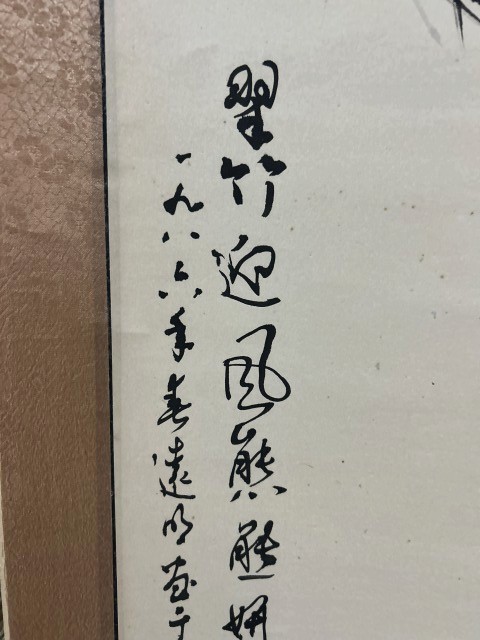 翠竹迎風熊態妍
一九八六年春遠明畫于